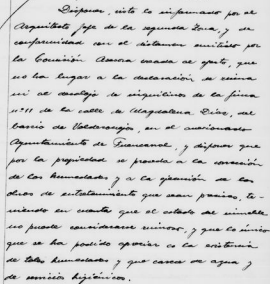 Disponer, visto lo informado por el
Arquitecto Jefe de la segunda Zona, y de
conformidad con el dictamen emitido por
la Comisión Asesora creada al efecto, que
no ha lugar a la declaración de ruina
ni al desalojo de inquilinos de la finca
nº 11 de la calle de Magdalena Díaz, del
barrio de Valderongas, en el anexionado
Ayuntamiento de Fuencarral, y disponer que
por la propiedad se proceda a la corrección
de las humedades y a la ejecución de las
obras de entretenimiento que sean precisas, te-
niendo en cuenta que el estado del inmueble
no puede considerarse ruinoso, y que lo único
que se ha podido apreciar es la existencia
de tales humedades y que carece de agua y
de servicios higiénicos.